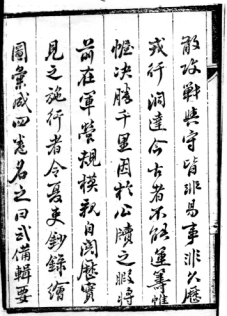 敵攻戰與守皆非易事非久歷
戎行洞達今古者不能運籌帷
幄决勝千里因於公牘之暇將
前在軍營規模親自閱歷實
見之施行者令書吏鈔錄繪
圖彙成四卷名之曰武備輯要